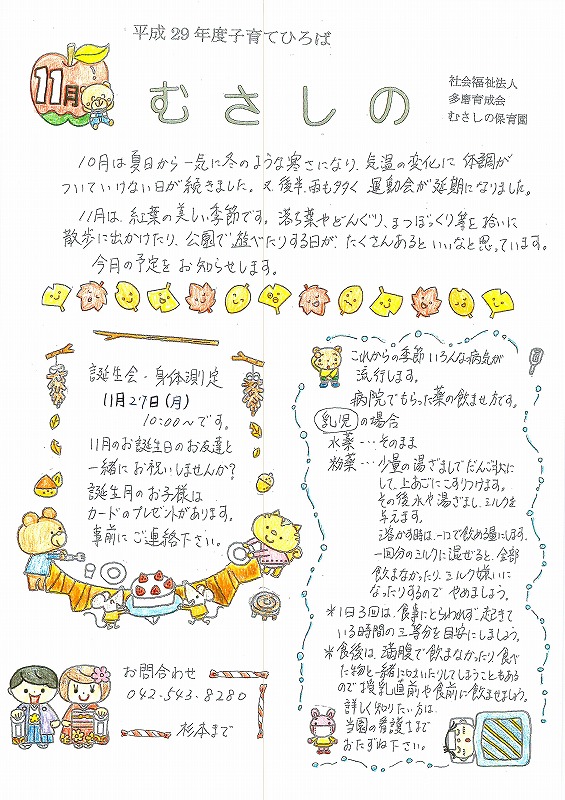 平成29年度子育てひろば
11月
むさしの
社会福祉法人
多磨育成会
むさしの保育園
10月は夏日から一気に冬のような寒さになり、気温の変化に体調が
ついていけない日が続きました。又、後半、雨も多く運動会が延期になりました。
11月は、紅葉の美しい季節です。落ち葉やどんぐり、まつぼっくり等を拾いに
散歩に出かけたり、公園で遊べたりする日が、たくさんあるといいなと思っています。
今月の予定をお知らせします。
誕生会・身体測定
11月27日(月)
10:00〜です。
11月のお誕生日のお友達と
一緒にお祝いしませんか?
誕生月のお子様は
カードのプレゼントがあります。
事前にご連絡下さい。
お問合わせ
042-543-8280
杉本まで
これからの季節いろんな病気が
流行します。
病院でもらった薬の飲ませ方です。
乳児の場合
水薬…そのまま
粉薬…少量の湯ざましでだんご状に
して、上あごにこすりつけます。
その後水や湯ざまし、ミルクを
与えます。
溶かす時は、一口で飲める量にします。
一回分のミルクに混ぜると、全部
飲まなかったり、ミルク嫌いに
なったりするので やめましょう。
*1日3回は、食事にとらわれず、起きて
いる時間の三等分を目安にしましょう。
*食後は、満腹で飲まなかったり食べ
た物と一緒に吐いたりしてしまうこともある
ので授乳直前や食前に飲ませましょう。
詳しく知りたい方は、
当園の看護士まで
おたずね下さい。